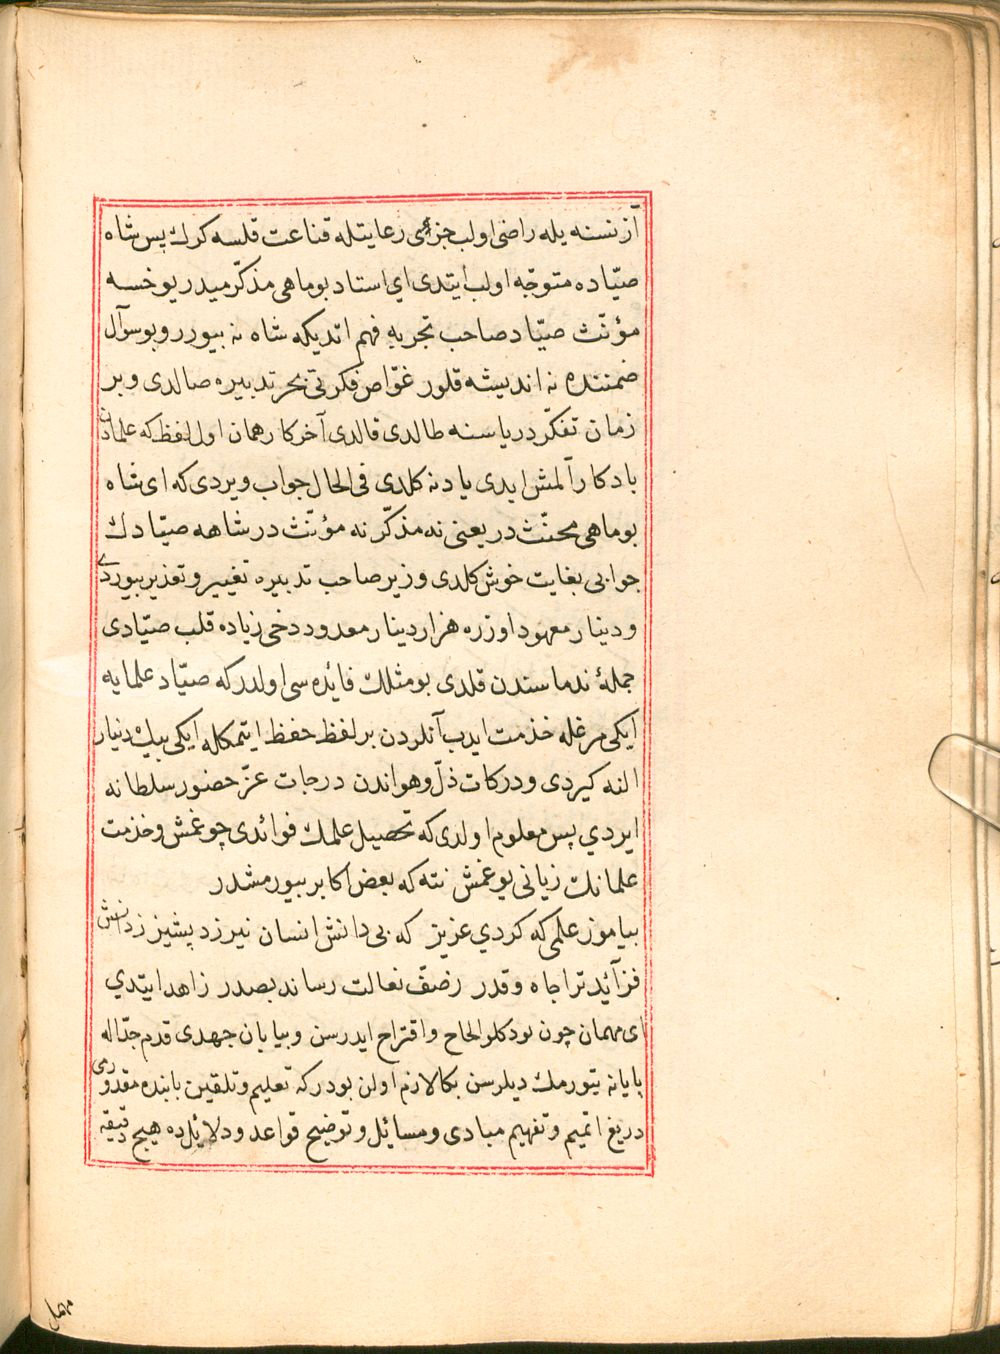 آز نسنه یله راضی اولب جزئی رعایتله قناعت قلسه کرك پس شاه
صیّاده متوجّه اولب ایتدی ای استاد بو ماهی مذکّر میدر یوخسه
مؤنّث صیّاد صاحب تجربه فهم اتدیکه شاه نه بیورر و بو سؤال
ضمننده نه اندیشه قلور غوّاص فکرتی بحر تدبیره صالدی و بر
زمان تفکّر دریاسنه طالدی قالدی آخر کار همان اول لفظ که علمادن
یادکار آلمش ایدی یادنه کلدی فی الحال جواب ویردی که ای شاه
بو ماهی مخنّث در یعنی نه مذکّر نه مؤنّث در شاهه صیّادك
جوابی بغایت خوش کلدی وزیر صاحب تدبیره تغییر و تعذیر بیوردی
و دینار معهود اوزره هزار دینار معدود دخی زیاده قلب صیّادی
جملهٔ ندماسندن قلدی بو مثلك فائده سی اولدر که صیّاد علمایه
ایکی مرغله خدمت ایدب آنلردن بر لفظ حفظ ایتمکله ایکی بیك دینار
النه کیردی و درکات ذلّ و هواندن درجات عزّ حضور سلطانه
ایردی پس معلوم اولدی که تحصیل علمك فوائدی چوغمش و خذمت
علمانك زیانی یوغمش نته که بعض اکابر بیورمشدر
بیاموز علمی که کردی عزیز که بی دانش انسان نیرزد پشیز ز دانش
فزآئید ترا جاه و قدر ز صفّ نعالت رساند بصدر زاهد ایتدی
ای مهمان چون بو دکلو الحاح و اقتراح ایدرسن و بیابان جهدی قدم جدّ اله
پایانه یتورمك دیلرسن بکا لازم اولن بودر که تعلیم و تلقین بابنده مقدوری
دریغ اتمیم و تفهیم مبادی و مسائل و توضیح قواعد و دلائلده هیچ دقیقه
مهمل